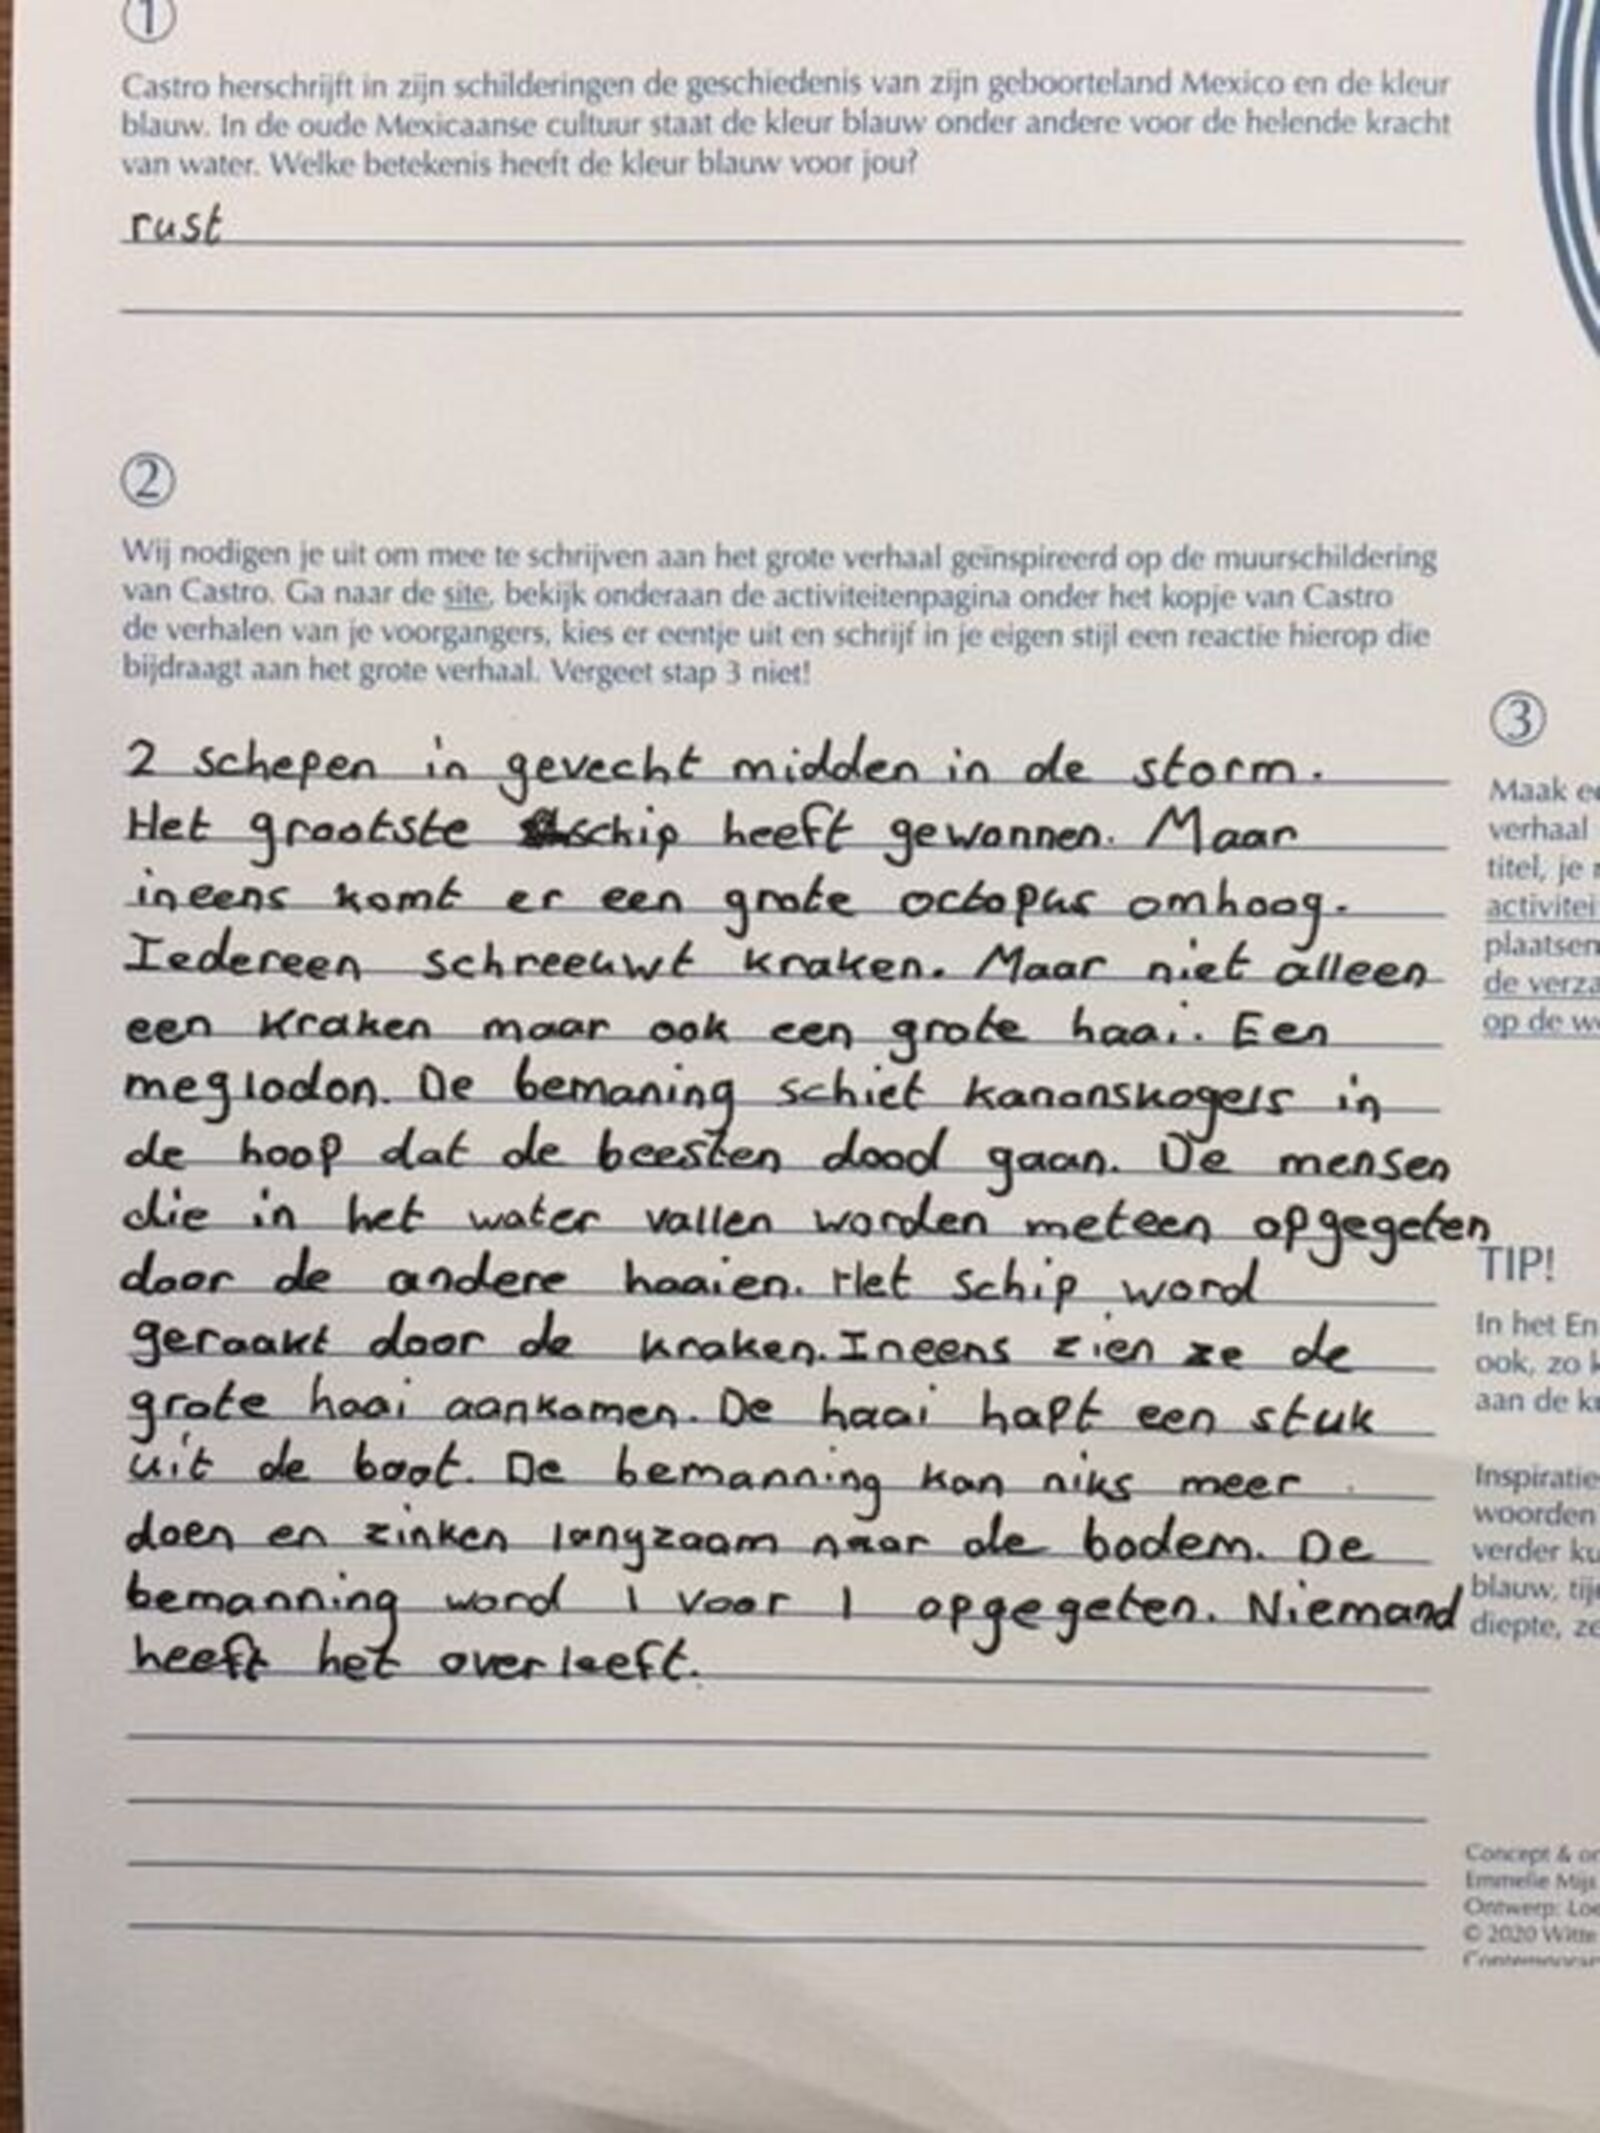 1
Castro herschrijft in zijn schilderingen de geschiedenis van zijn geboorteland Mexico en de kleur
blauw. In de oude Mexicaanse cultuur staat de kleur blauw onder andere voor de helende kracht
van water. Welke betekenis heeft de kleur blauw voor jou?
rust
2
Wij nodigen je uit om mee te schrijven aan het grote verhaal geïnspireerd op de muurschildering
van Castro. Ga naar de site, bekijk onderaan de activiteitenpagina onder het kopje van Castro
de verhalen van je voorgangers, kies er eentje uit en schrijf in je eigen stijl een reactie hierop die
bijdraagt aan het grote verhaal. Vergeet stap 3 niet!
2 schepen in gevecht midden in de storm.
Het grootste schip heeft gewonnen. Maar
ineens komt er een grote octopus omhoog.
Iedereen schreeuwt kraken. Maar niet alleen
een kraken maar ook een grote haai. Een
meglodon. De bemaning schiet kanonskogels in
de hoop dat de beesten dood gaan. De mensen
die in het water vallen worden meteen opgegeten
door de andere haaien. Het schip word
geraakt door de kraken. Ineens zien ze de
grote haai aankomen. De haai hapt een stuk
uit de boot. De bemanning kan niks meer
doen en zinken langzaam naar de bodem. De
bemanning word 1 voor 1 opgegeten. Niemand
heeft het overleeft.
3
Maak
verhaal
titel, je
activitei
plaatsen
de verza
op de w
TIP!
In het En
ook, zo k
aan de k
Inspiratie
woorden
verder ku
blauw, tij
diepte, ze
Concept & on
Emmelie Mijs
Ontwerp: Loe
© 2020 Witte